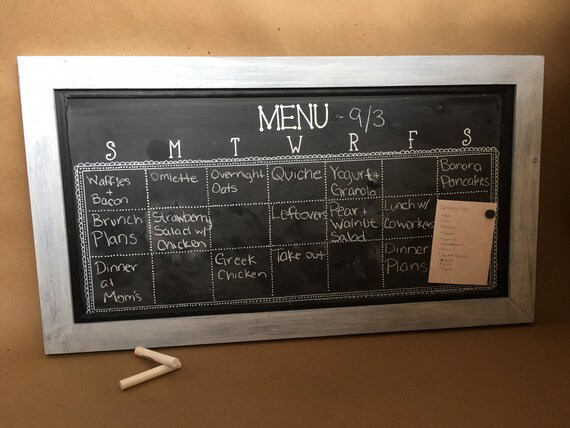 MENU - 9/3
S M T W R F S
Waffles + Bacon
Omlette
Overnight Oats
Quiche
Yogurt + Granola
Banana Pancakes
Brunch Plans
Strawberry Salad w/ Chicken
Leftovers
Pear + Walnut Salad
Lunch w/ Coworkers
Dinner at Mom's
Greek Chicken
Take out
Dinner Plans